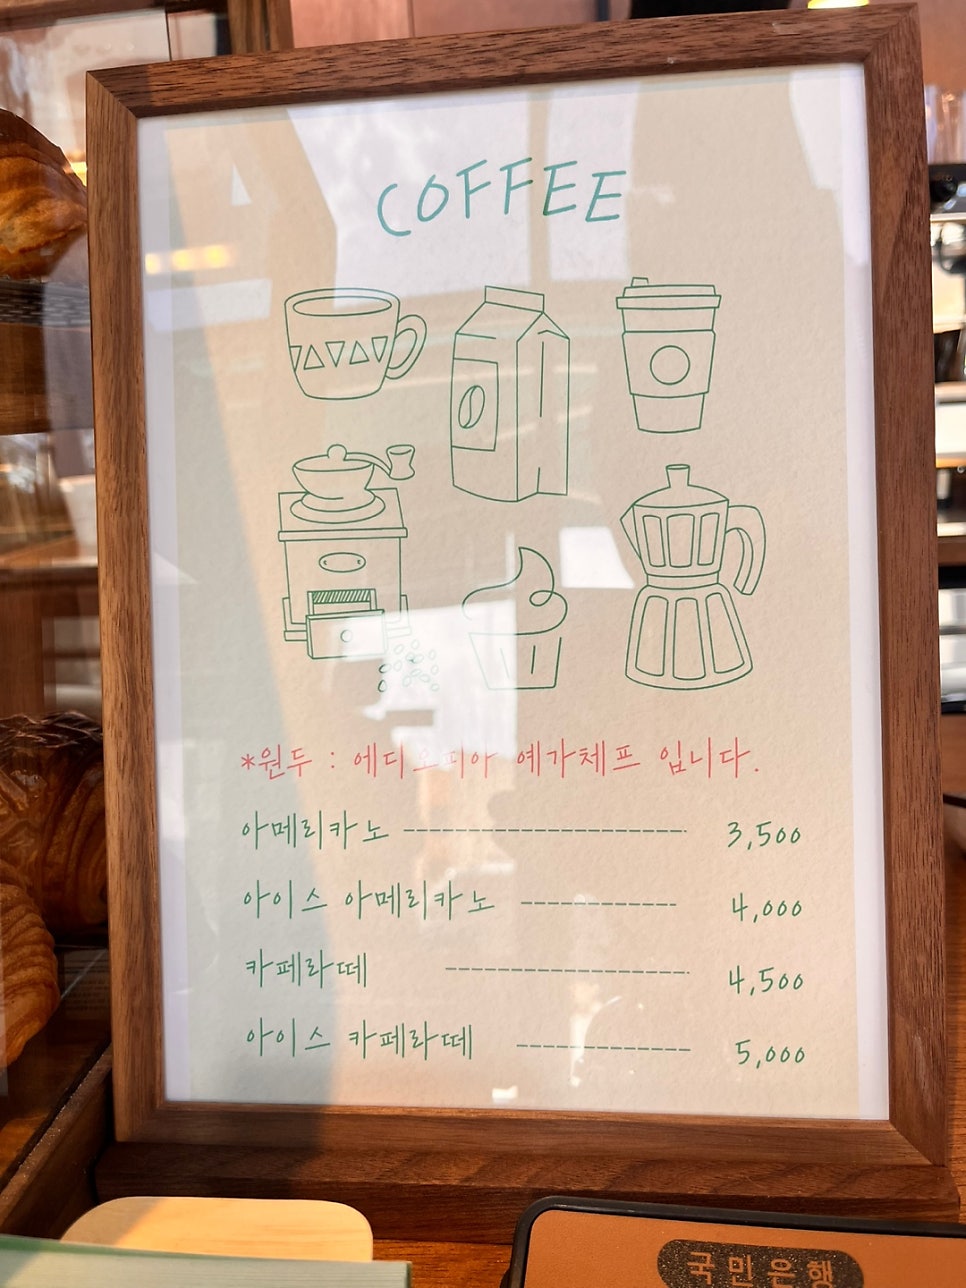 COFFEE
*원두 : 에디오피아 예가체프 입니다.
아메리카노 ---------- 3,500
아이스 아메리카노 ---------- 4,000
카페라떼 ---------- 4,500
아이스 카페라떼 ---------- 5,000
국민은행